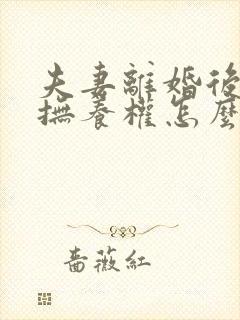 夫妻離婚後
撫養權怎麼
薔薇紅